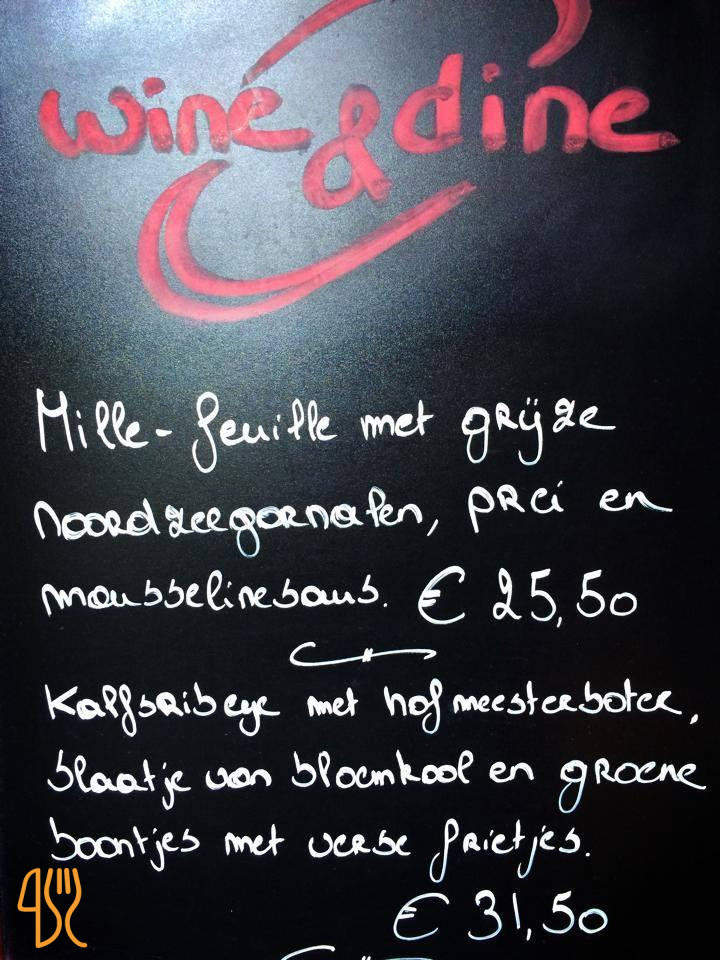 wine & dine
Mille-feuille met grijze
Noordzeegarnalen, prei en
mousselinesaus. € 25,50
Kalfsribeye met hofmeesterboter,
blaatje van bloemkool en groene
boontjes met verse frietjes.
€ 31,50